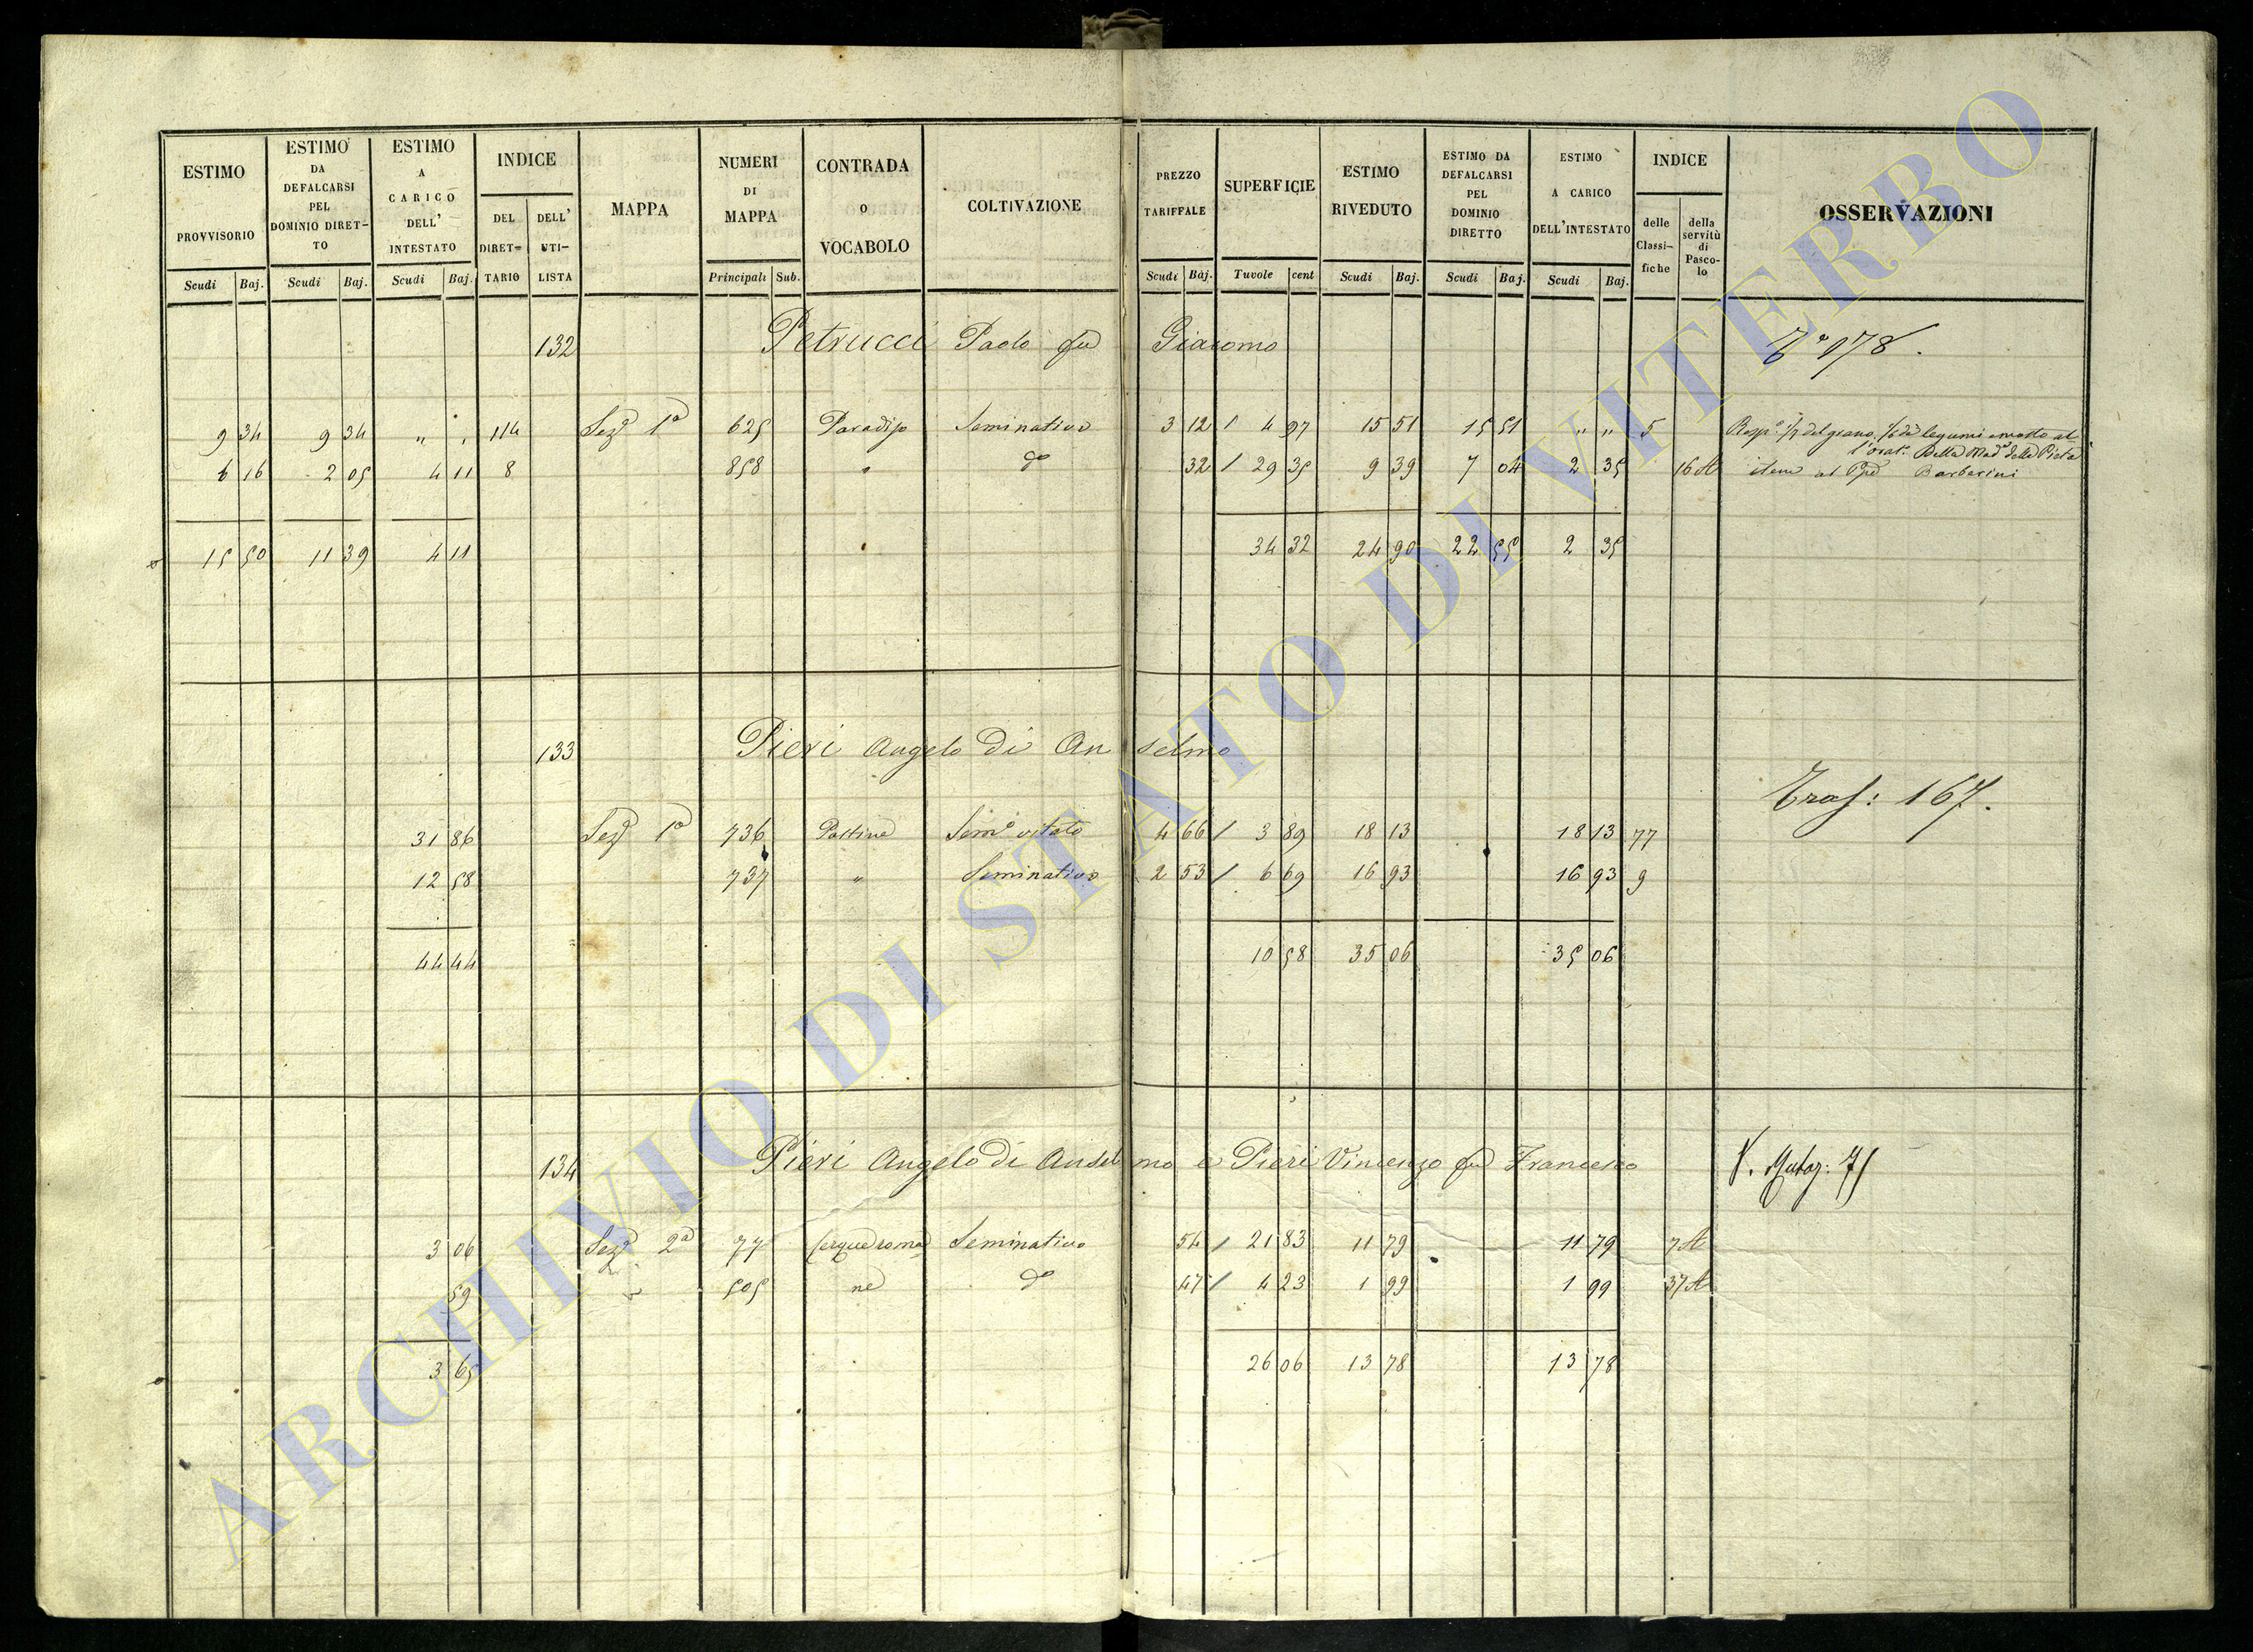 ESTIMO PROVVISORIO Scudi Baj. ESTIMO DA DEFALCARSI PEL DOMINIO DIRET-TO Scudi Baj. ESTIMO A CARICO DELL' INTESTATO Scudi Baj. INDICE DEL DIRET-TARIO DELL' UTI-LISTA MAPPA NUMERI DI MAPPA Principali Sub. CONTRADA O VOCABOLO COLTIVAZIONE PREZZO TARIFFALE Scudi Baj. SUPERFICIE Tavole cent ESTIMO RIVEDUTO Scudi Baj. ESTIMO DA DEFALCARSI PEL DOMINIO DIRETTO Scudi Baj. ESTIMO A CARICO DELL'INTESTATO Scudi Baj. INDICE delle Classi-fiche della servitù di Pasco-lo OSSERVAZIONI
132 Petrucci Paolo fu Giacomo 178.
9 34 9 34 " " 114 Sez.e 1a 625 Paradiso Seminativo 3 12 / 4 97 15 51 15 51 " " 5 del grano, legumi e mosto al-
l'orat.o Della Mad.a della Pietà
6 16 2 05 4 11 8 858 " do 32 / 29 35 9 39 7 04 2 35 16 A item al Barberini
15 50 11 39 4 11 34 32 24 90 22 55 2 35
133 Pieri Angelo Di Anselmo
Tras: 167.
31 86 Sez.e 1a 736 Pastine Sem.o vitato 4 66 / 3 89 18 13 18 13 77
12 58 737 " Seminativo 2 53 / 6 69 16 93 16 93 9
44 44 10 58 35 06 35 06
134 Pieri Angelo di Anselmo e Pieri Vincenzo fu Francesco V. 75
3 06 Sez.e 2a 77 Cerquedroma Seminativo 54 / 21 83 11 79 11 79 7 A
59 " 505 ne do 47 / 4 23 1 99 1 99 37 A
3 65 26 06 13 78 13 78
ARCHIVIO DI STATO DI VITERBO